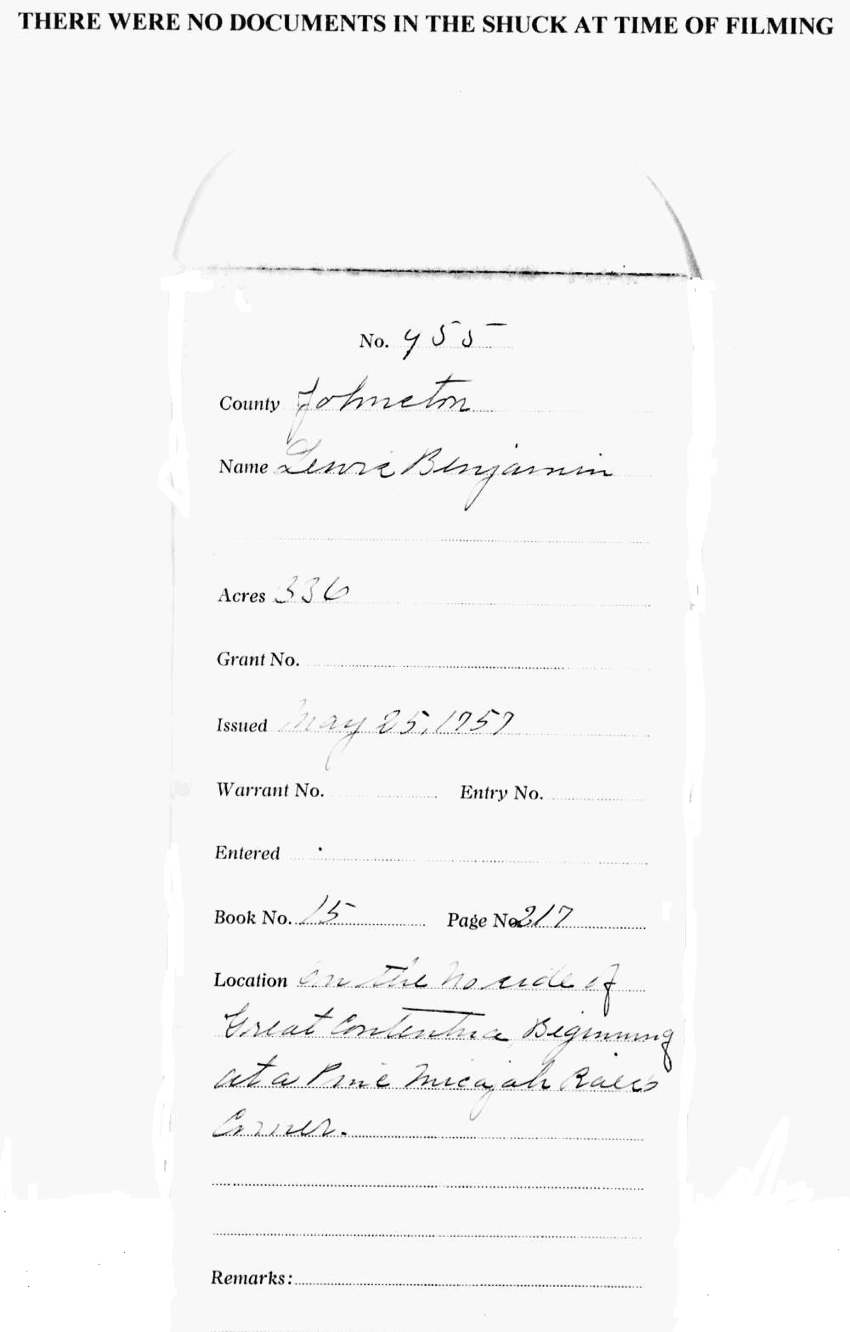 THERE WERE NO DOCUMENTS IN THE SHUCK AT TIME OF FILMING
No. 455
County Johnston
Name Lewis Benjamin
Acres 336
Grant No.
Issued May 25, 1757
Warrant No. Entry No.
Entered
Book No. 15 Page No. 217
Location On the No side of
Great Contentnea Beginning
at a Pine Micajah
Corner.
Remarks: